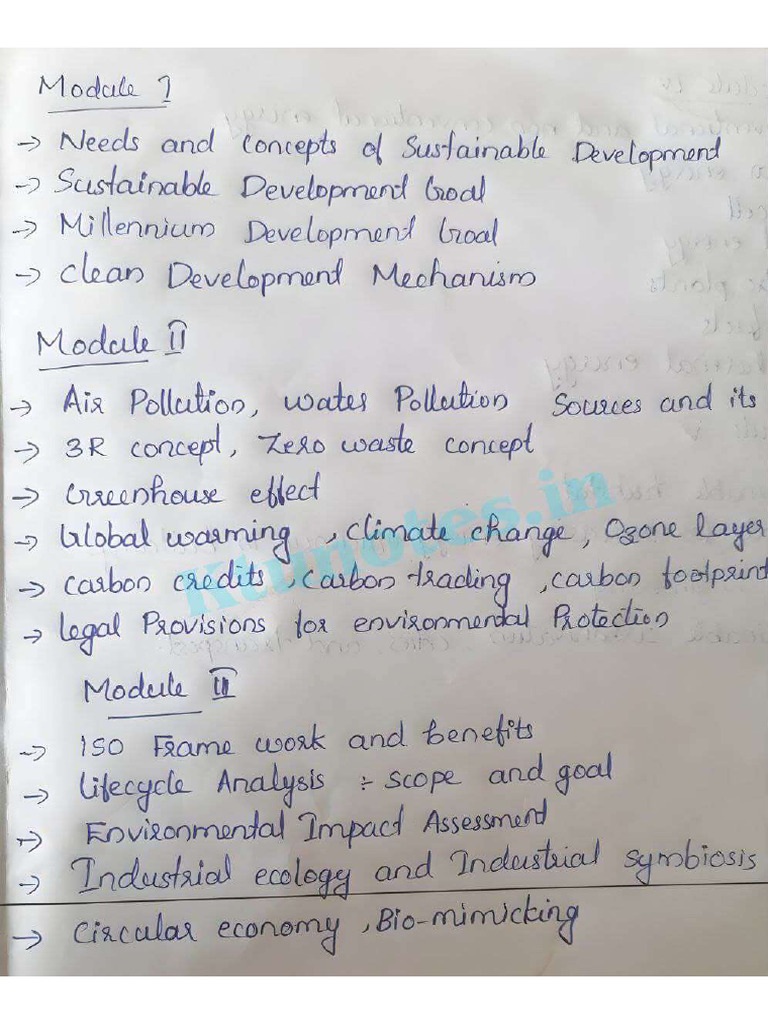 Module I
→ Needs and Concepts of Sustainable Development
→ Sustainable Development Goal
→ Millennium Development Goal
→ Clean Development Mechanism
Module II
→ Air Pollution, water Pollution Sources and its
→ 3R concept, Zero waste concept
→ Greenhouse effect
→ Global warming, climate change, Ozone layer
→ carbon credits, carbon trading, carbon footprint
→ legal Provisions for environmental Protection
Ktunotes.in
Module III
→ ISO Frame work and benefits
→ Lifecycle Analysis :- scope and goal
→ Environmental Impact Assessment
→ Industrial ecology and Industrial symbiosis
→ Circular economy, Bio-mimicking